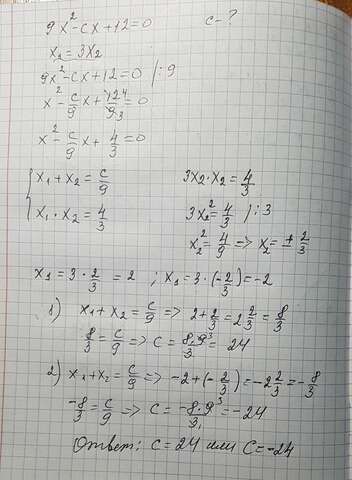 9x² - cx + 12 = 0    c - ?
x₁ = 3x₂
9x² - cx + 12 = 0 /:9
x² - c/9 x + 12⁴/9₃ = 0
x² - c/9 x + 4/3 = 0
{ x₁ + x₂ = c/9    3x₂·x₂ = 4/3
x₁ · x₂ = 4/3    3x₂² = 4/3 /:3
x₂² = 4/9 => x₂ = ± 2/3
x₁ = 3 · 2/3 = 2 ; x₁ = 3 · (-2/3) = -2
1) x₁ + x₂ = c/9 => 2 + 2/3 = 2 2/3 = 8/3
8/3 = c/9 => c = 8·9³/3₁ = 24
2) x₁ + x₂ = c/9 => -2 + (-2/3) = -2 2/3 = -8/3
-8/3 = c/9 => c = -8·9³/3₁ = -24
Ответ: c = 24 или c = -24